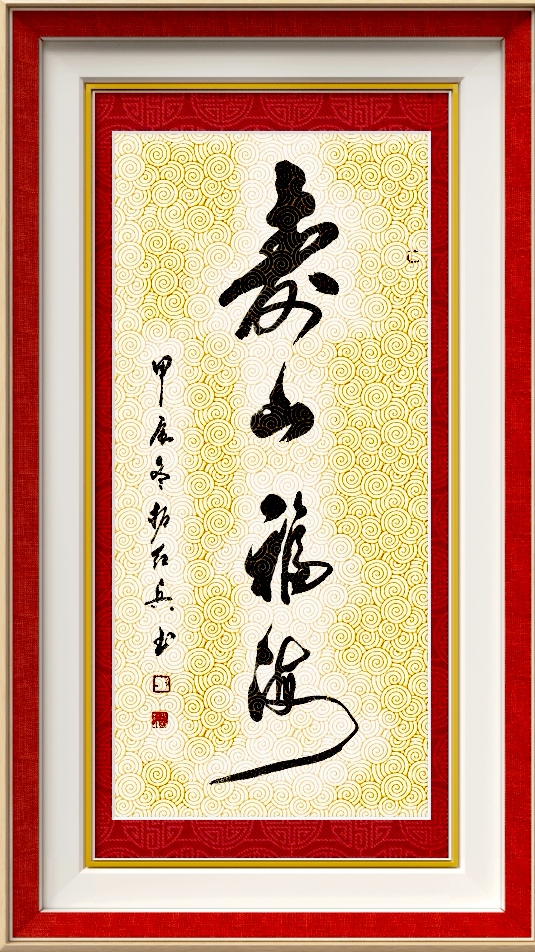 寿山福海
甲辰冬杨红兵书